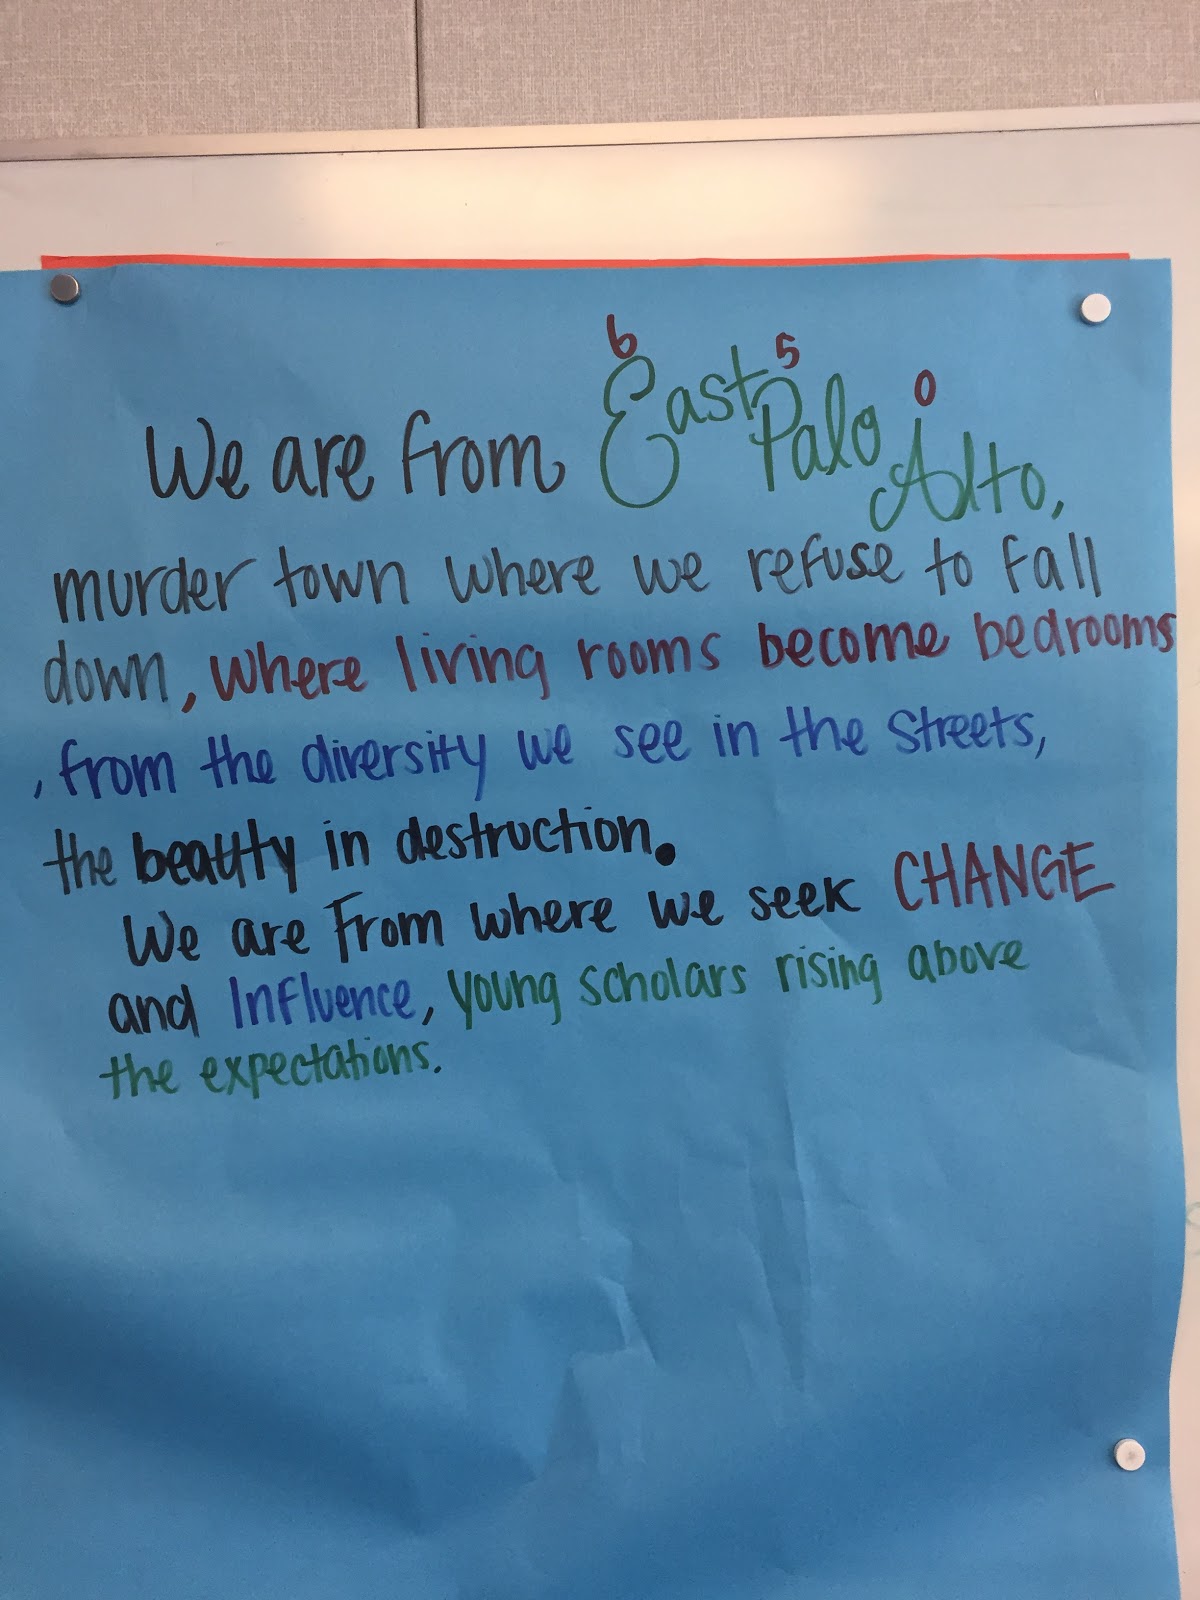 6 5 0
We are from East Palo Alto,
murder town where we refuse to fall
down, where living rooms become bedrooms
, from the diversity we see in the streets,
the beauty in destruction.
We are from where we seek CHANGE
and Influence, young scholars rising above
the expectations.